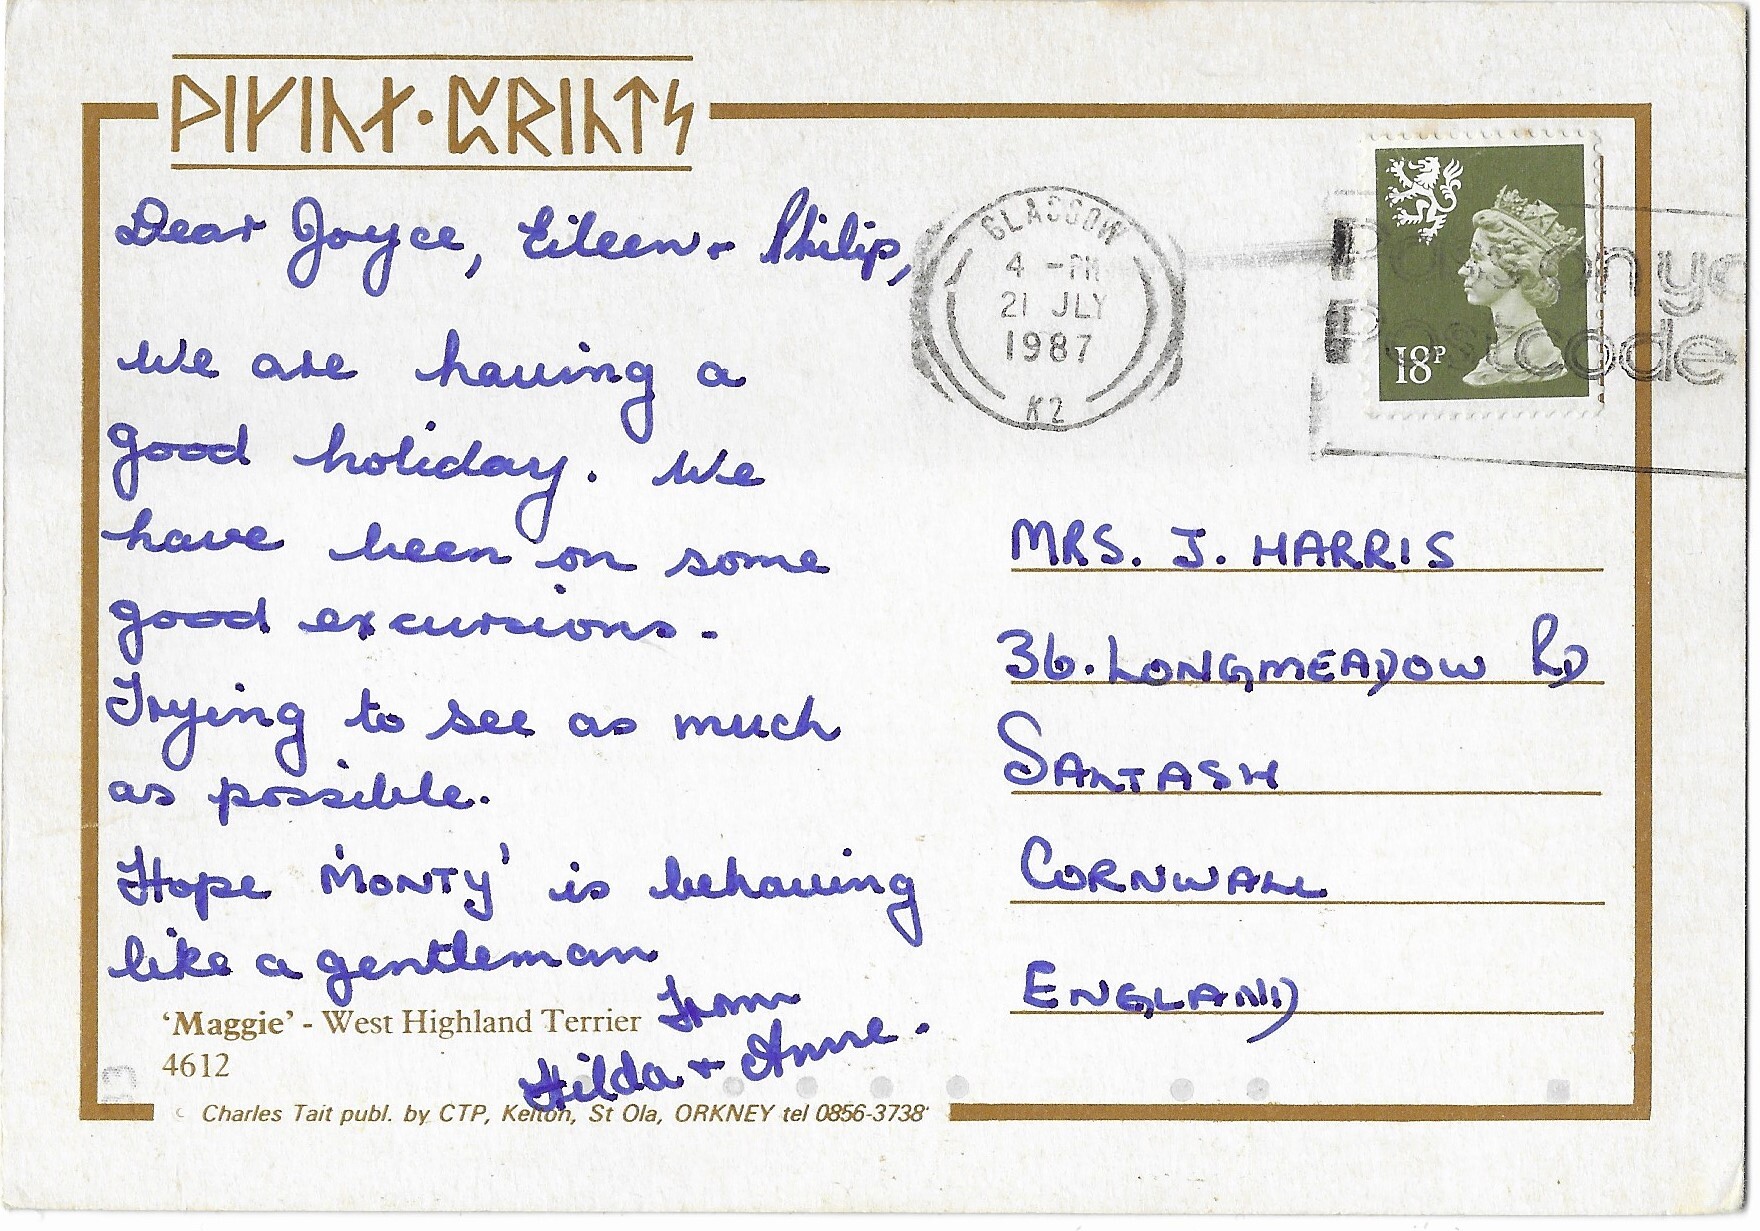 ᚹᛁᚴᛁᚢᚷ·ᛈᚱᛁᚢᛏᛋ
Dear Joyce, Eileen + Philip,
We are having a
good holiday. We
have been on some
good excursions.
Trying to see as much
as possible.
Hope 'MONTY' is behaving
like a gentleman
From
Hilda + Anne.
'Maggie' - West Highland Terrier
4612
Charles Tait publ. by CTP, Kelton, St Ola, ORKNEY tel 0856-3738
GLASGOW
4 - PM
21 JLY
1987
K2
18P
Pass on yo
Postcode
MRS. J. HARRIS
36. LONGMEADOW RD
SALTASH
CORNWALL
ENGLAND